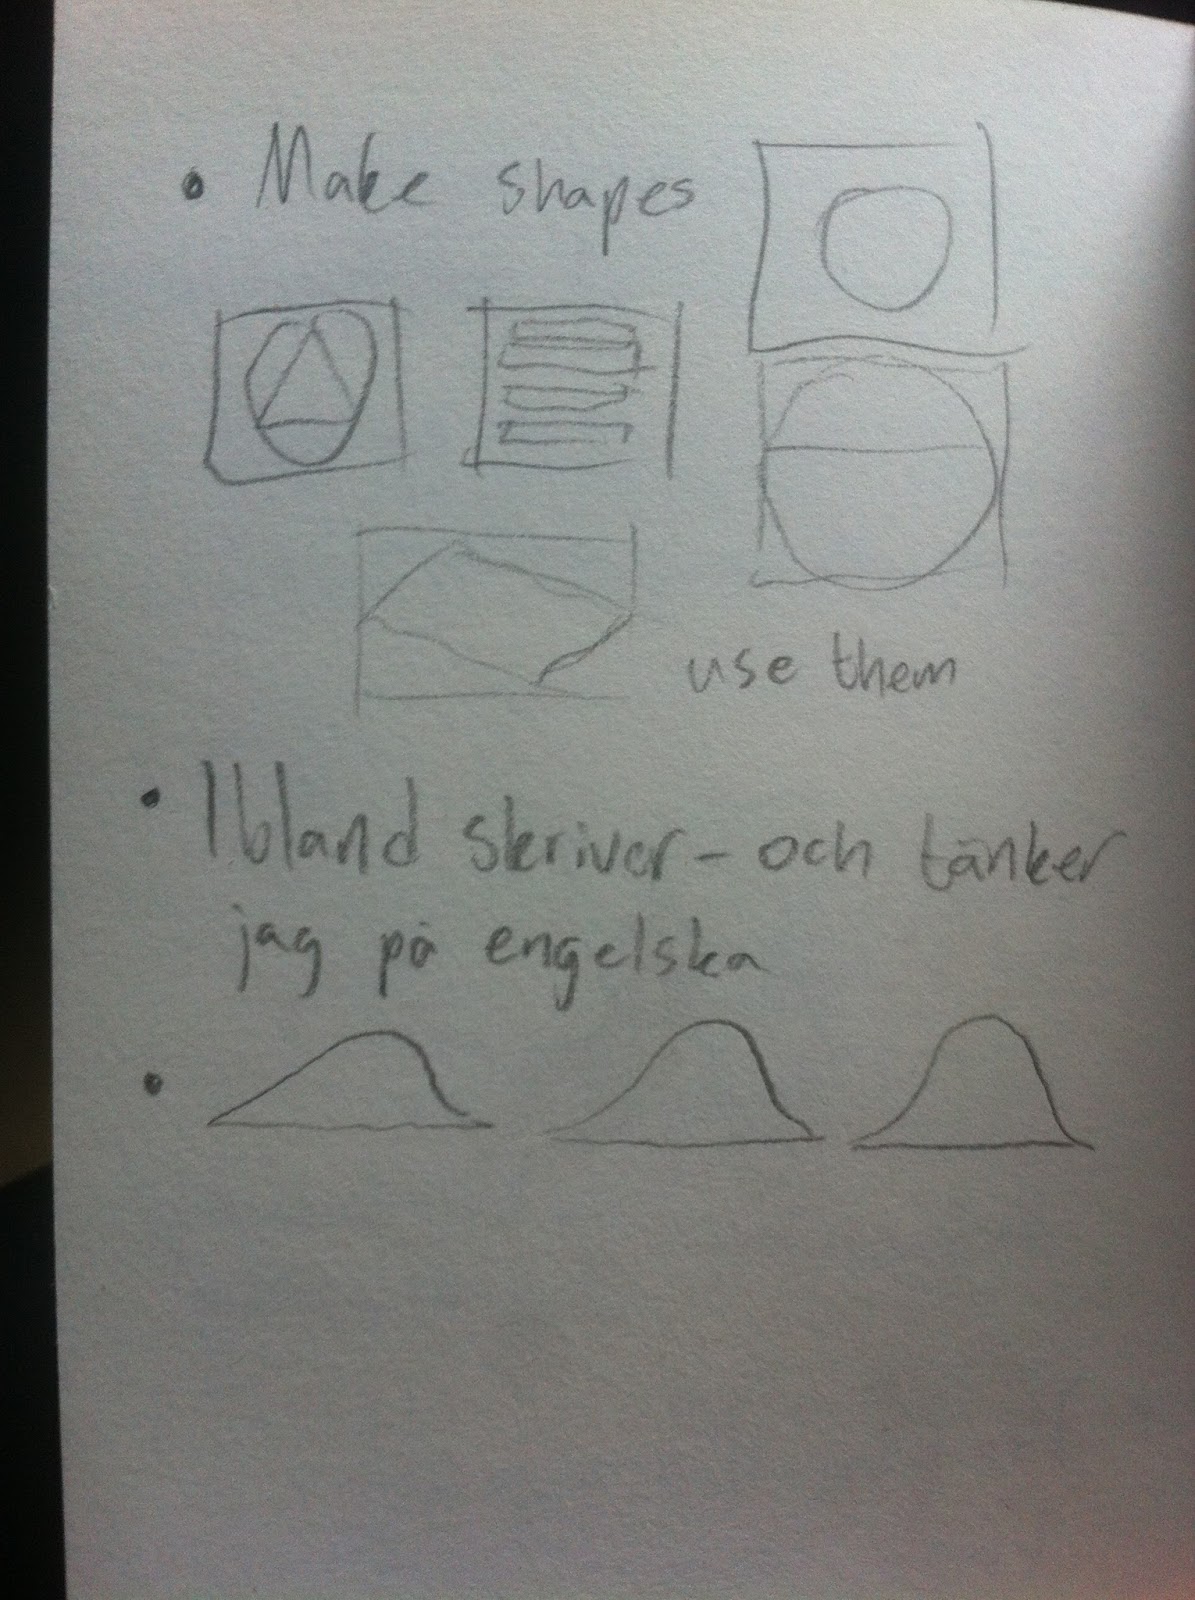 • Make shapes
use them
• Ibland skriver - och tänker
jag på engelska
•